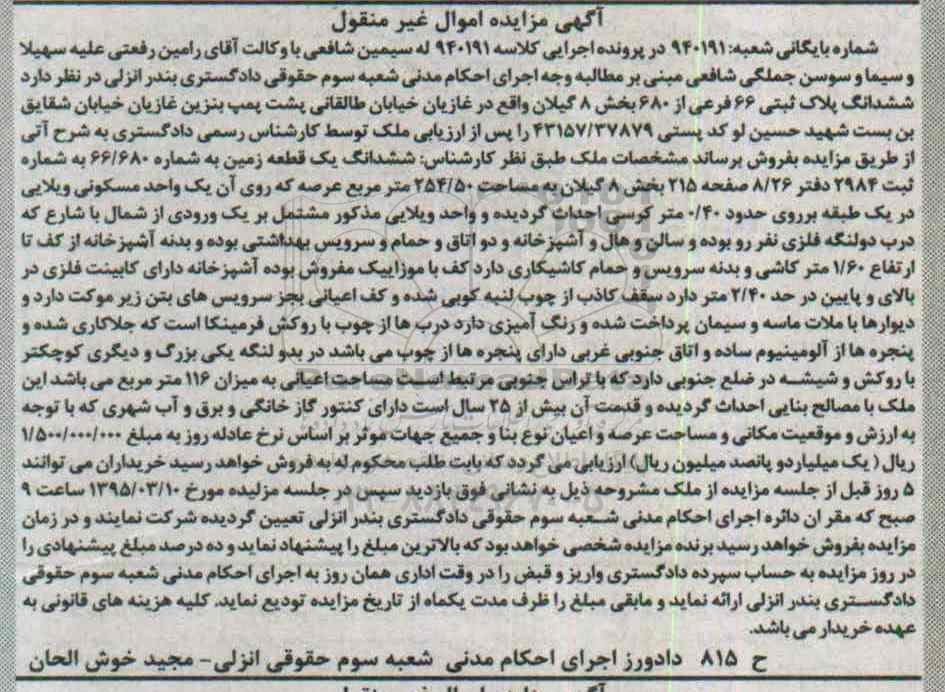 آگهی مزایده اموال غیر منقول
شماره بایگانی شعبه: ۹۴۰۱۹۱ در پرونده اجرایی کلاسه ۹۴۰۱۹۱ له سیمین شافعی با وکالت آقای رامین رفعتی علیه سهیلا
و سیما و سوسن جملگی شافعی مبنی بر مطالبه وجه اجرای احکام مدنی شعبه سوم حقوقی دادگستری بندر انزلی در نظر دارد
ششدانگ پلاک ثبتی ۶۶ فرعی از ۶۸۰ بخش ۸ گیلان واقع در غازیان خیابان طالقانی پشت پمپ بنزین غازیان خیابان شقایق
بن بست شهید حسین لو کد پستی ۴۳۱۵۷/۳۷۸۷۹ را پس از ارزیابی ملک توسط کارشناس رسمی دادگستری به شرح آتی
از طریق مزایده بفروش برساند مشخصات ملک طبق نظر کارشناس: ششدانگ یک قطعه زمین به شماره ۶۶/۶۸۰ به شماره
ثبت ۲۹۸۴ دفتر ۸/۲۶ صفحه ۲۱۵ بخش ۸ گیلان به مساحت ۲۵۴/۵۰ متر مربع عرصه که روی آن یک واحد مسکونی ویلایی
در یک طبقه برروی حدود ۰/۴۰ متر کرسی احداث گردیده و واحد ویلایی مذکور مشتمل بر یک ورودی از شمال با شارع که
درب دولنگه فلزی نفر رو بوده و سالن و هال و آشپزخانه و دو اتاق و حمام و سرویس بهداشتی بوده و بدنه آشپزخانه از کف تا
ارتفاع ۱/۶۰ متر کاشی و بدنه سرویس و حمام کاشیکاری دارد کف با موزاییک مفروش بوده آشپزخانه دارای کابینت فلزی در
بالای و پایین در حد ۲/۴۰ متر دارد سقف کاذب از چوب لنبه کوبی شده و کف اعیانی بجز سرویس های بتن زیر موکت دارد و
دیوارها با ملات ماسه و سیمان پرداخت شده و رنگ آمیزی دارد درب ها از چوب با روکش فرمیکا است که جلاکاری شده و
پنجره ها از آلومینیوم ساده و اتاق جنوبی غربی دارای پنجره ها از چوب می باشد در بدو لنگه یکی بزرگ و دیگری کوچکتر
با روکش و شیشه در ضلع جنوبی دارد که با تراس جنوبی مرتبط است مساحت اعیانی به میزان ۱۱۶ متر مربع می باشد این
ملک با مصالح بنایی احداث گردیده و قدمت آن بیش از ۲۵ سال است دارای کنتور گاز خانگی و برق و آب شهری که با توجه
به ارزش و موقعیت مکانی و مساحت عرصه و اعیان نوع بنا و جمیع جهات موثر بر اساس نرخ عادله روز به مبلغ ۱/۵۰۰/۰۰۰/۰۰۰
ریال ( یک میلیارد و پانصد میلیون ریال) ارزیابی می گردد که بابت طلب محکوم له به فروش خواهد رسید خریداران می توانند
۵ روز قبل از جلسه مزایده از ملک مشروحه ذیل به نشانی فوق بازدید سپس در جلسه مزلیده مورخ ۱۳۹۵/۰۳/۱۰ ساعت ۹
صبح که مقر ان دائره اجرای احکام مدنی شعبه سوم حقوقی دادگستری بندر انزلی تعیین گردیده شرکت نمایند و در زمان
مزایده بفروش خواهد رسید برنده مزایده شخصی خواهد بود که بالاترین مبلغ را پیشنهاد نماید و ده درصد مبلغ پیشنهادی را
در روز مزایده به حساب سپرده دادگستری واریز و قبض را در وقت اداری همان روز به اجرای احکام مدنی شعبه سوم حقوقی
دادگستری بندر انزلی ارائه نماید و مابقی مبلغ را ظرف مدت یکماه از تاریخ مزایده تودیع نماید. کلیه هزینه های قانونی به
عهده خریدار می باشد.
ح ۸۱۵ دادورز اجرای احکام مدنی شعبه سوم حقوقی انزلی- مجید خوش الحان